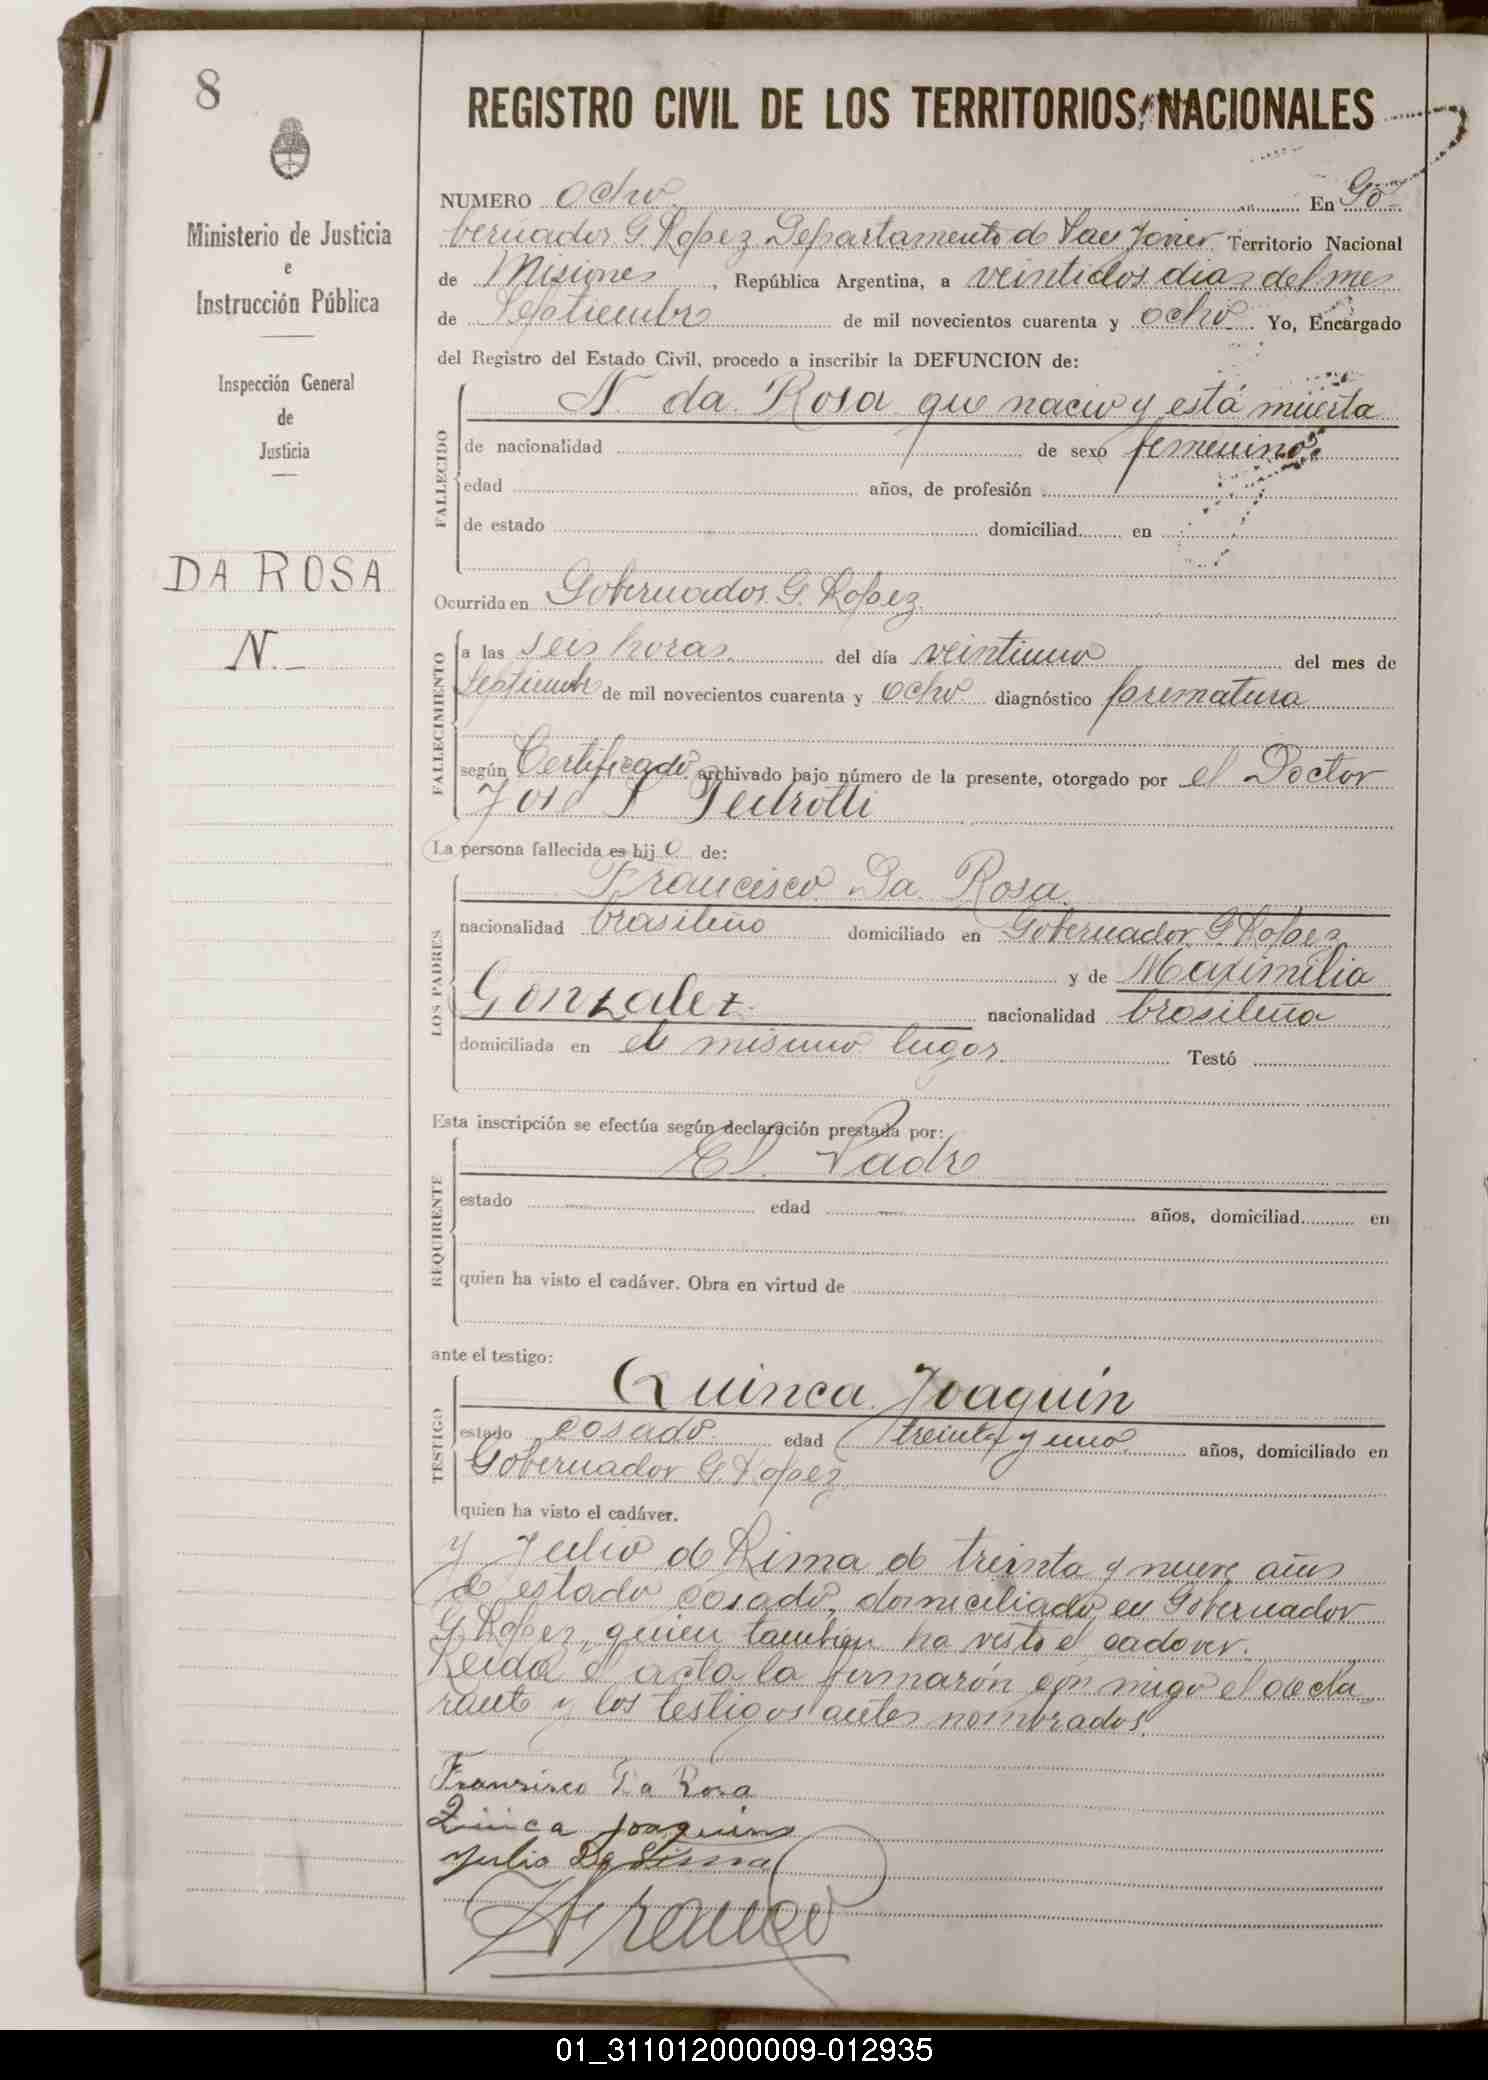 8
Ministerio de Justicia
e
Instrucción Pública
Inspección General
de
Justicia
DA ROSA
N.-
REGISTRO CIVIL DE LOS TERRITORIOS NACIONALES
NUMERO Ocho En Go-
bernador G Lopez Departamento de San Javier Territorio Nacional
de Misiones, República Argentina, a veintidos dias del mes
de Septiembre de mil novecientos cuarenta y ocho. Yo, Encargado
del Registro del Estado Civil, procedo a inscribir la DEFUNCION de:
FALLECIDO
N. da Rosa que nacio y está muerta
de nacionalidad de sexo femenino
edad años, de profesión
de estado domiciliad en
Ocurrida en Gobernador G. Lopez
FALLECIMIENTO
a las seis horas del día veintiuno del mes de
Septiembre de mil novecientos cuarenta y ocho diagnóstico prematura
según Certificado archivado bajo número de la presente, otorgado por el Doctor
José Pedrotti
La persona fallecida es hij de:
LOS PADRES
Francisco Da Rosa
nacionalidad brasileño domiciliado en Gobernador G Lopez
y de Maximilia
Gonzalez nacionalidad brasileña
domiciliada en el mismo lugar. Testó
Esta inscripción se efectúa según declaración prestada por:
REQUIRENTE
El Padre
estado — edad — años, domiciliad en
quien ha visto el cadáver. Obra en virtud de
ante el testigo:
TESTIGO
Quinca Joaquin
estado casado edad treinta y uno años, domiciliado en
Gobernador G. Lopez
quien ha visto el cadáver.
y Julio de Lima de treinta y nueve años
de estado casado, domiciliado en Gobernador
G Lopez, quien tambien ha visto el cadaver.
Leida el acta la firmarón con migo el decla-
rante y los testigos antes nombrados.
Francisco Da Rosa
Quinca Joaquin
Julio De Lima
01_311012000009-012935